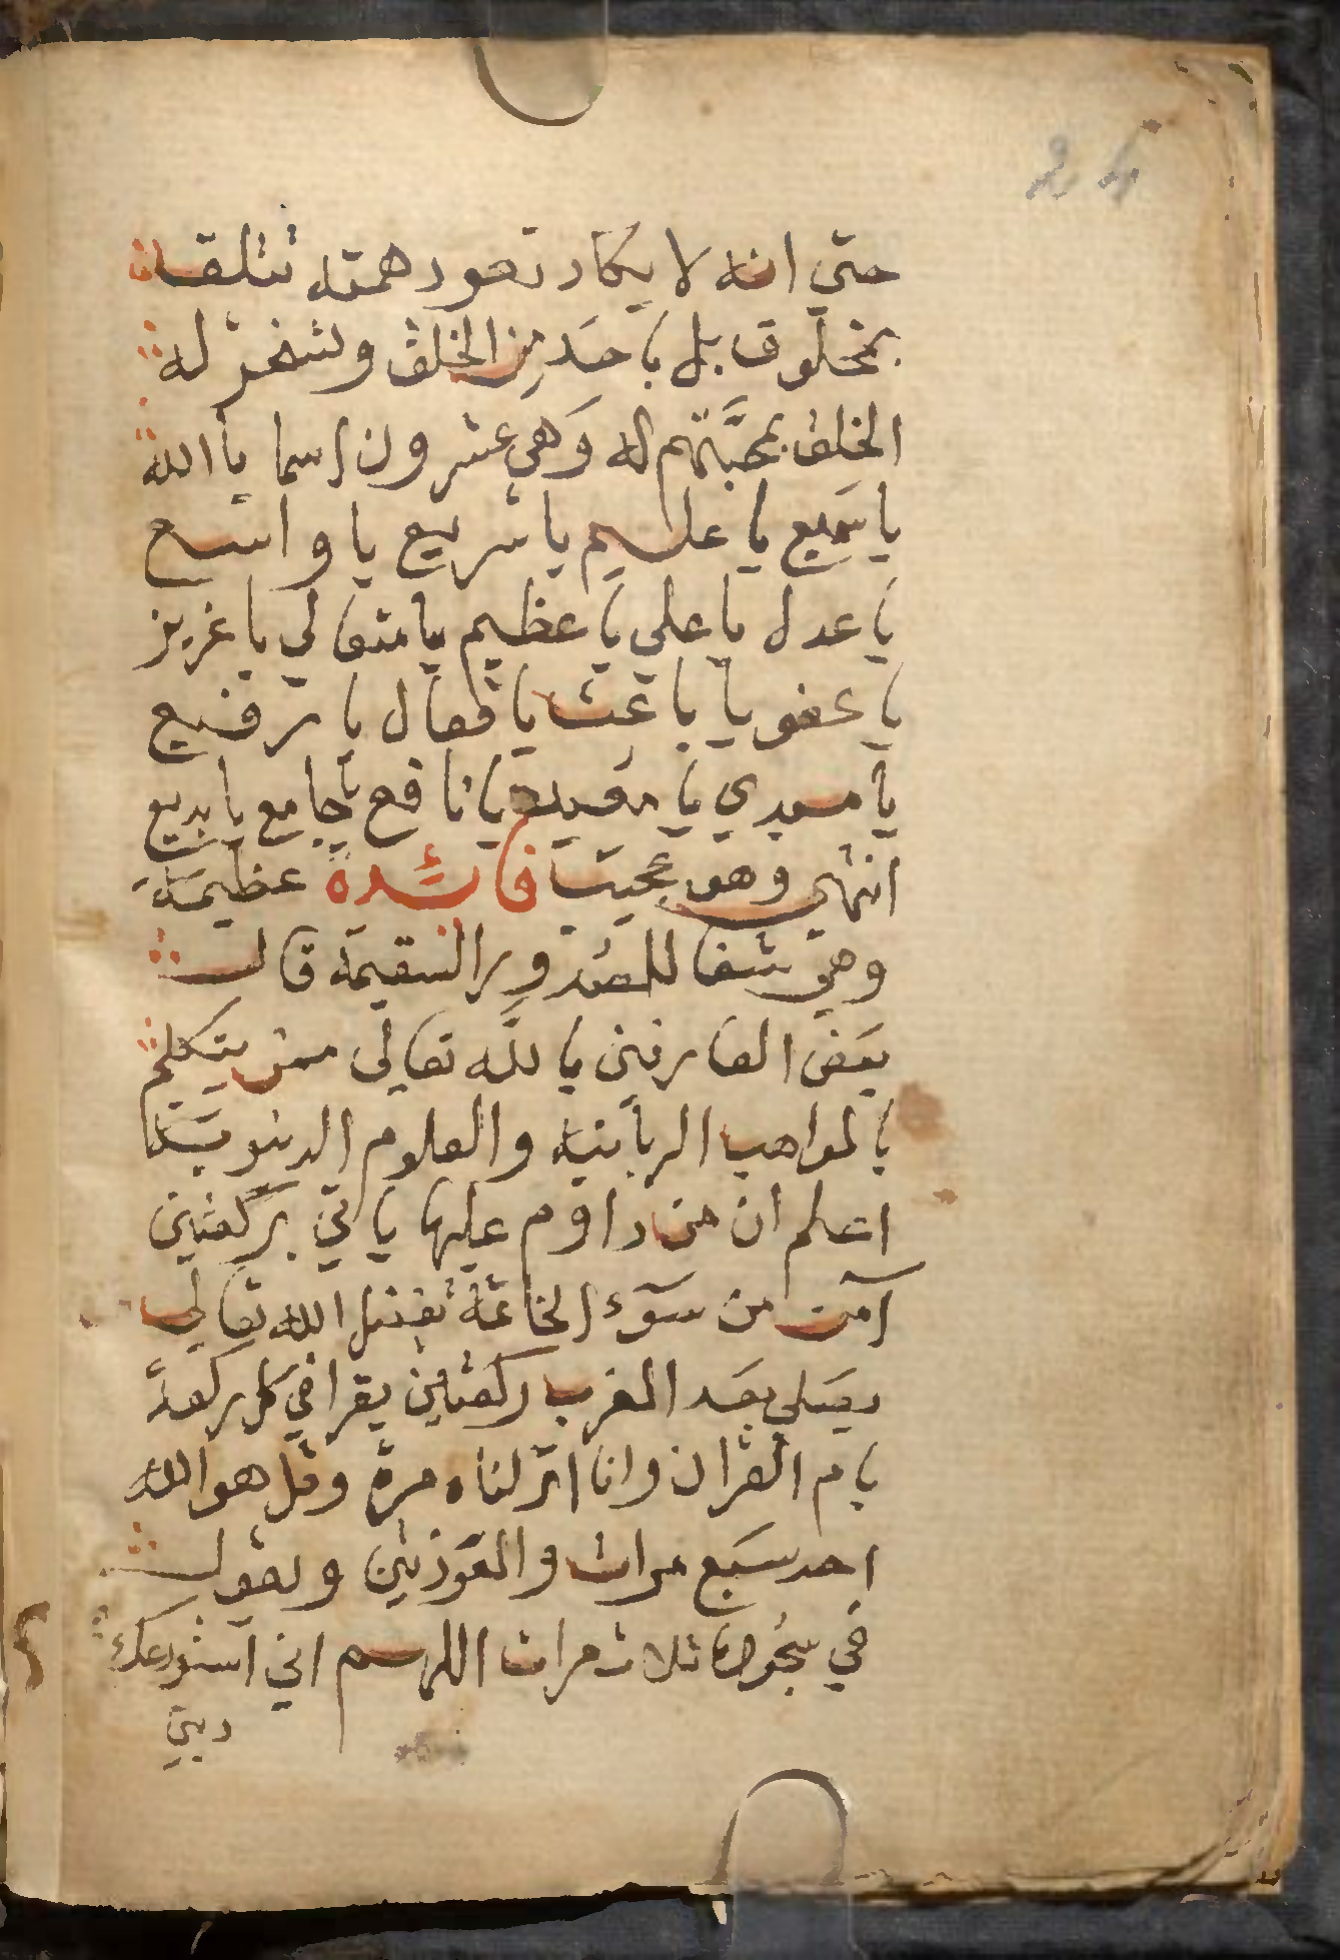 حتي انه لا يكاد تعود همته تتلقا
بمخلوق بل باحد من الخلق وتسخر له
الخلق بمحبتهم له وهي عشرون اسما يا الله
يا سميع يا عليم يا سريع يا واسع
يا عدل يا علي يا عظيم يا متعالي يا عزيز
يا عفو يا باعث يا فعال يا رفيع
يا مبدي يا معيد يا نافع يا جامع يا بديع
انتهي وهو عجيب فائدة عظيمة
وهي شفا للصدور السقيمة قال
بعض العارفين بالله تعالى ممن يتكلم
بالمواهب الربانيه والعلوم الدينويه
اعلم ان من داوم عليها ياتي بركعتين
آمن من سوء الخاتمة بفضل الله تعالي
يصلي بعد المغرب ركعتين يقرا في كل ركعة
بام القران وانا انزلناه مرة وقل هو الله
احد سبع مرات والمعوذتين ويقول
في سجوده ثلاث مرات اللهم اني استودعك
ديني